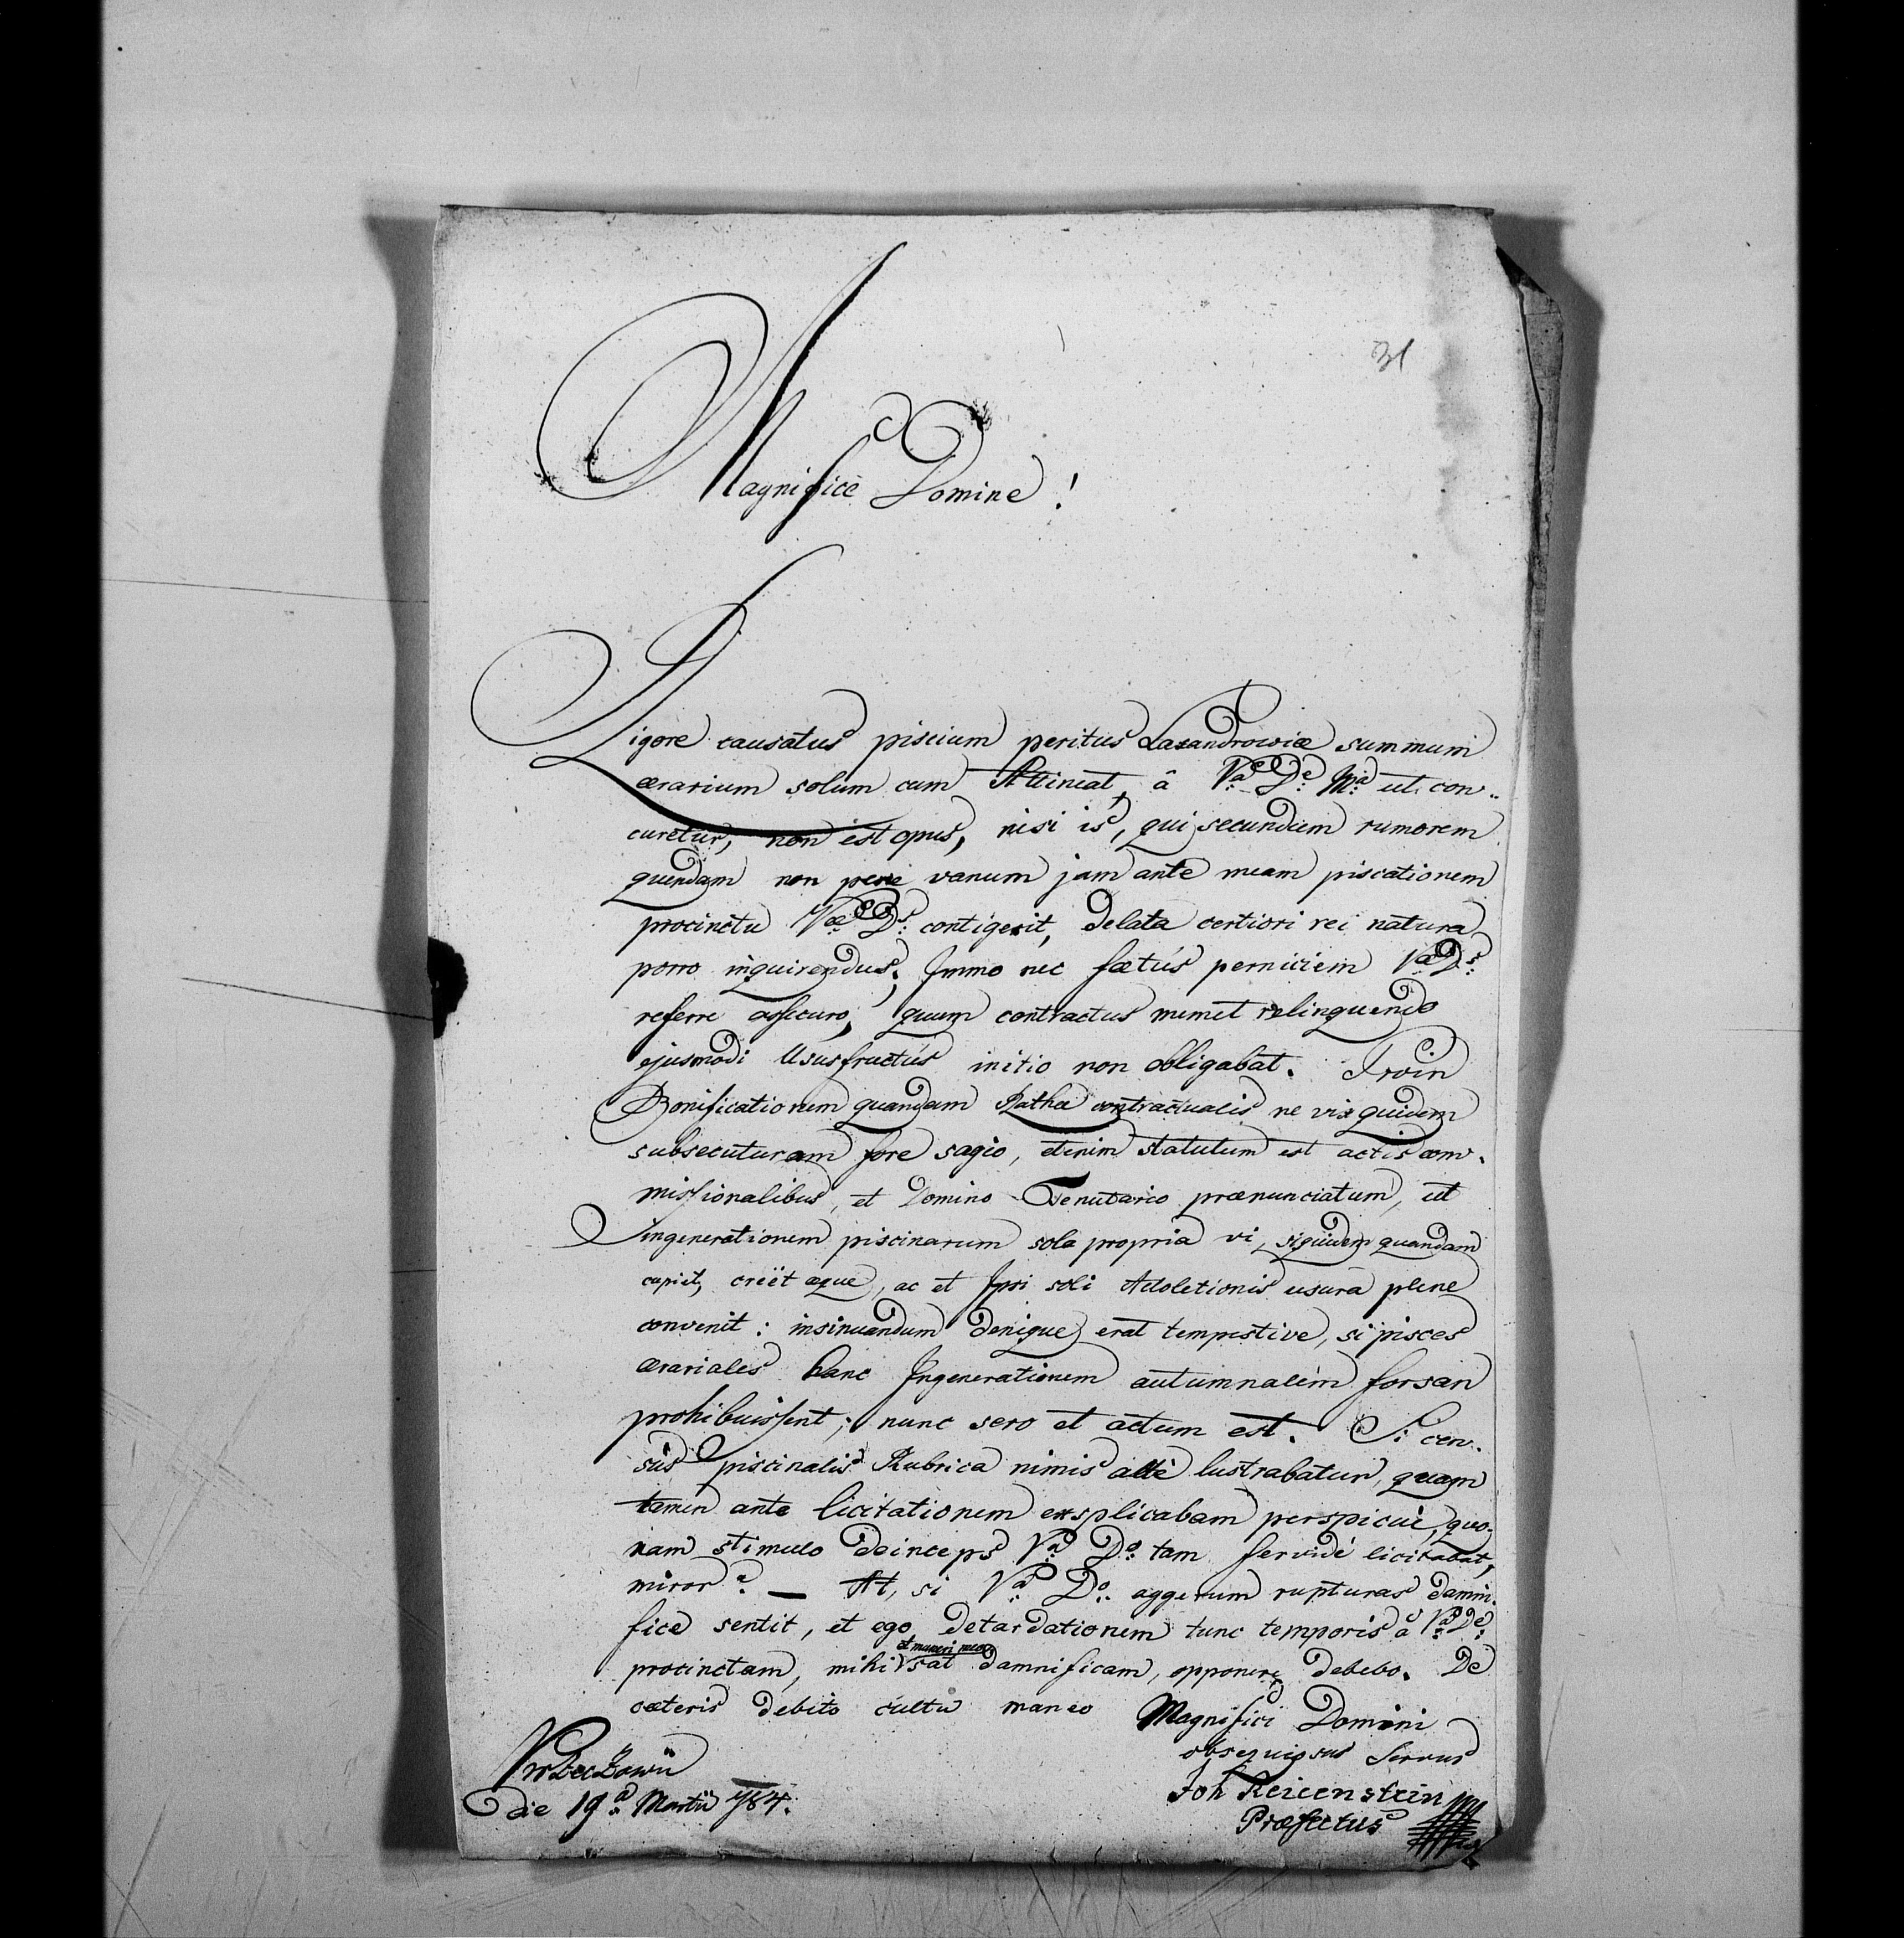 31
Magnifice Domine!
Rigore causatus piscium peritus Lazandrowiæ summum
ærarium solum cum Attineat, â Vª Dᵉ Mª ut con..
curetur, non est opus, nisi is, qui secundum rumorem
quendam non pene vanum jam ante meam piscationem
procinctu Væ Dⁱˢ contigerit, delata certiori rei natura
porro inquirendus; Immo nec fœtús perniciem Væ Dⁱˢ
referre assecuro, quum contractus memet relinquendo
ejusmodi Ususfructús initio non obligabat. Proin
Bonificationem quandam Rathæ contractualis ne vix quidem
subsecuturam fore sagio, etenim statutum est actis com.
missionalibus, et Domino Tenutario prænunciatum, ut
ingenerationem piscinarum sola propria vi, siquidem quandam
cupiet, creët æque, ac et Ipsi soli Adoletionis usura plene
convenit: insinuandum denique erat tempestive, si pisces
ærariales hanc Ingenerationem autumnalem forsan
prohibuissent; nunc sero et actum est. Si cen.
sús piscinalis Rubrica nimis alte lustrabatur, quam
tamen ante licitationem explicabam perspicuè, quo-
nam stimulo deinceps Vª Dº tam fervidè licitabat,
miror? — At, si Vª Dº aggerum rupturas damni.
fice sentit, et ego detardationem tunc temporis â Vª Dᵉ
procinctam, mihi et muneri meo sat damnificam, opponere debebo. De
cæteris debito cultu maneo Magnifici Domini
obsequiosus Servus
Joh Reicenstein
Præfectus
die 19ª Martii 784.